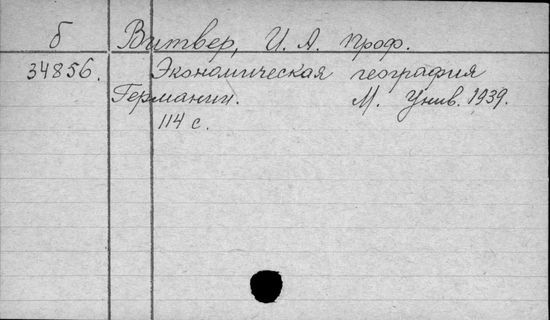 б Витвер, И. А. проф.
34856. Экономическая география
Германии. М. Унив. 1939.
114 с.